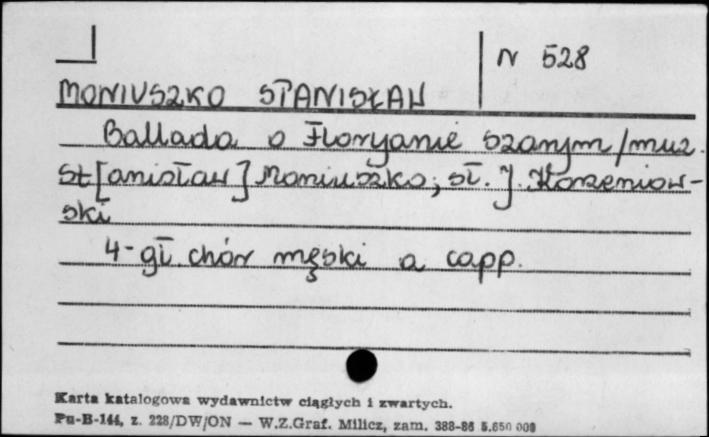 N 528
MONIUSZKO STANISŁAW
Ballada o Floryanie szarym / muz.
St[anisław] Moniuszko; sł. J. Korzeniow-
ski
4-gł chór męski a capp.
Karta katalogowa wydawnictw ciągłych i zwartych.
Pu-B-144, z. 228/DW/ON — W.Z.Graf. Milicz, zam. 388-86 5.650 000